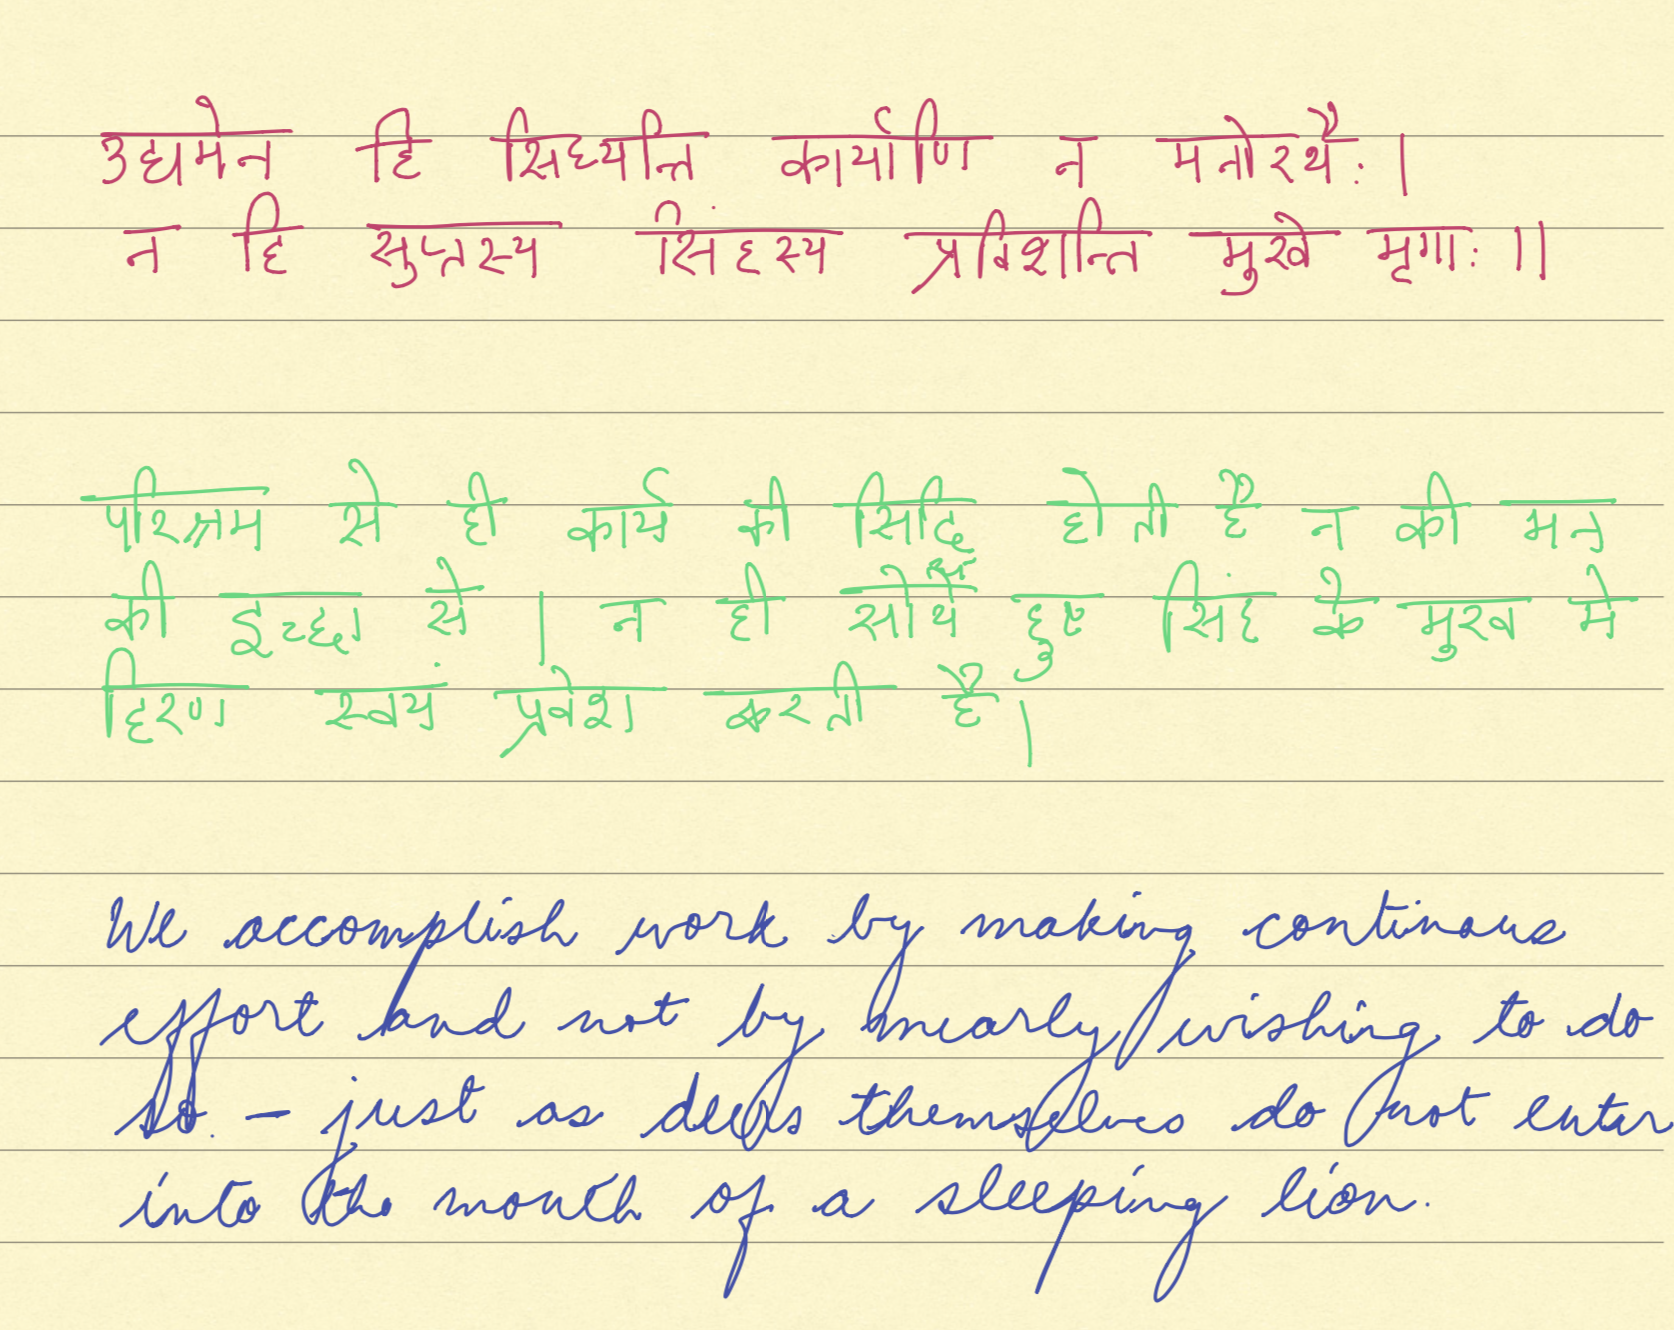 उद्यमेन हि सिध्यन्ति कार्याणि न मनोरथैः।
न हि सुप्तस्य सिंहस्य प्रविशन्ति मुखे मृगाः॥
परिश्रम से ही कार्य की सिद्धि होती है न की मन
की इच्छा से। न ही सोये हुए सिंह के मुख मे
हिरण स्वयं प्रवेश करती है।
We accomplish work by making continous
effort and not by mearly wishing to do
so. - just as deers themselves do not enter
into the mouth of a sleeping lion.